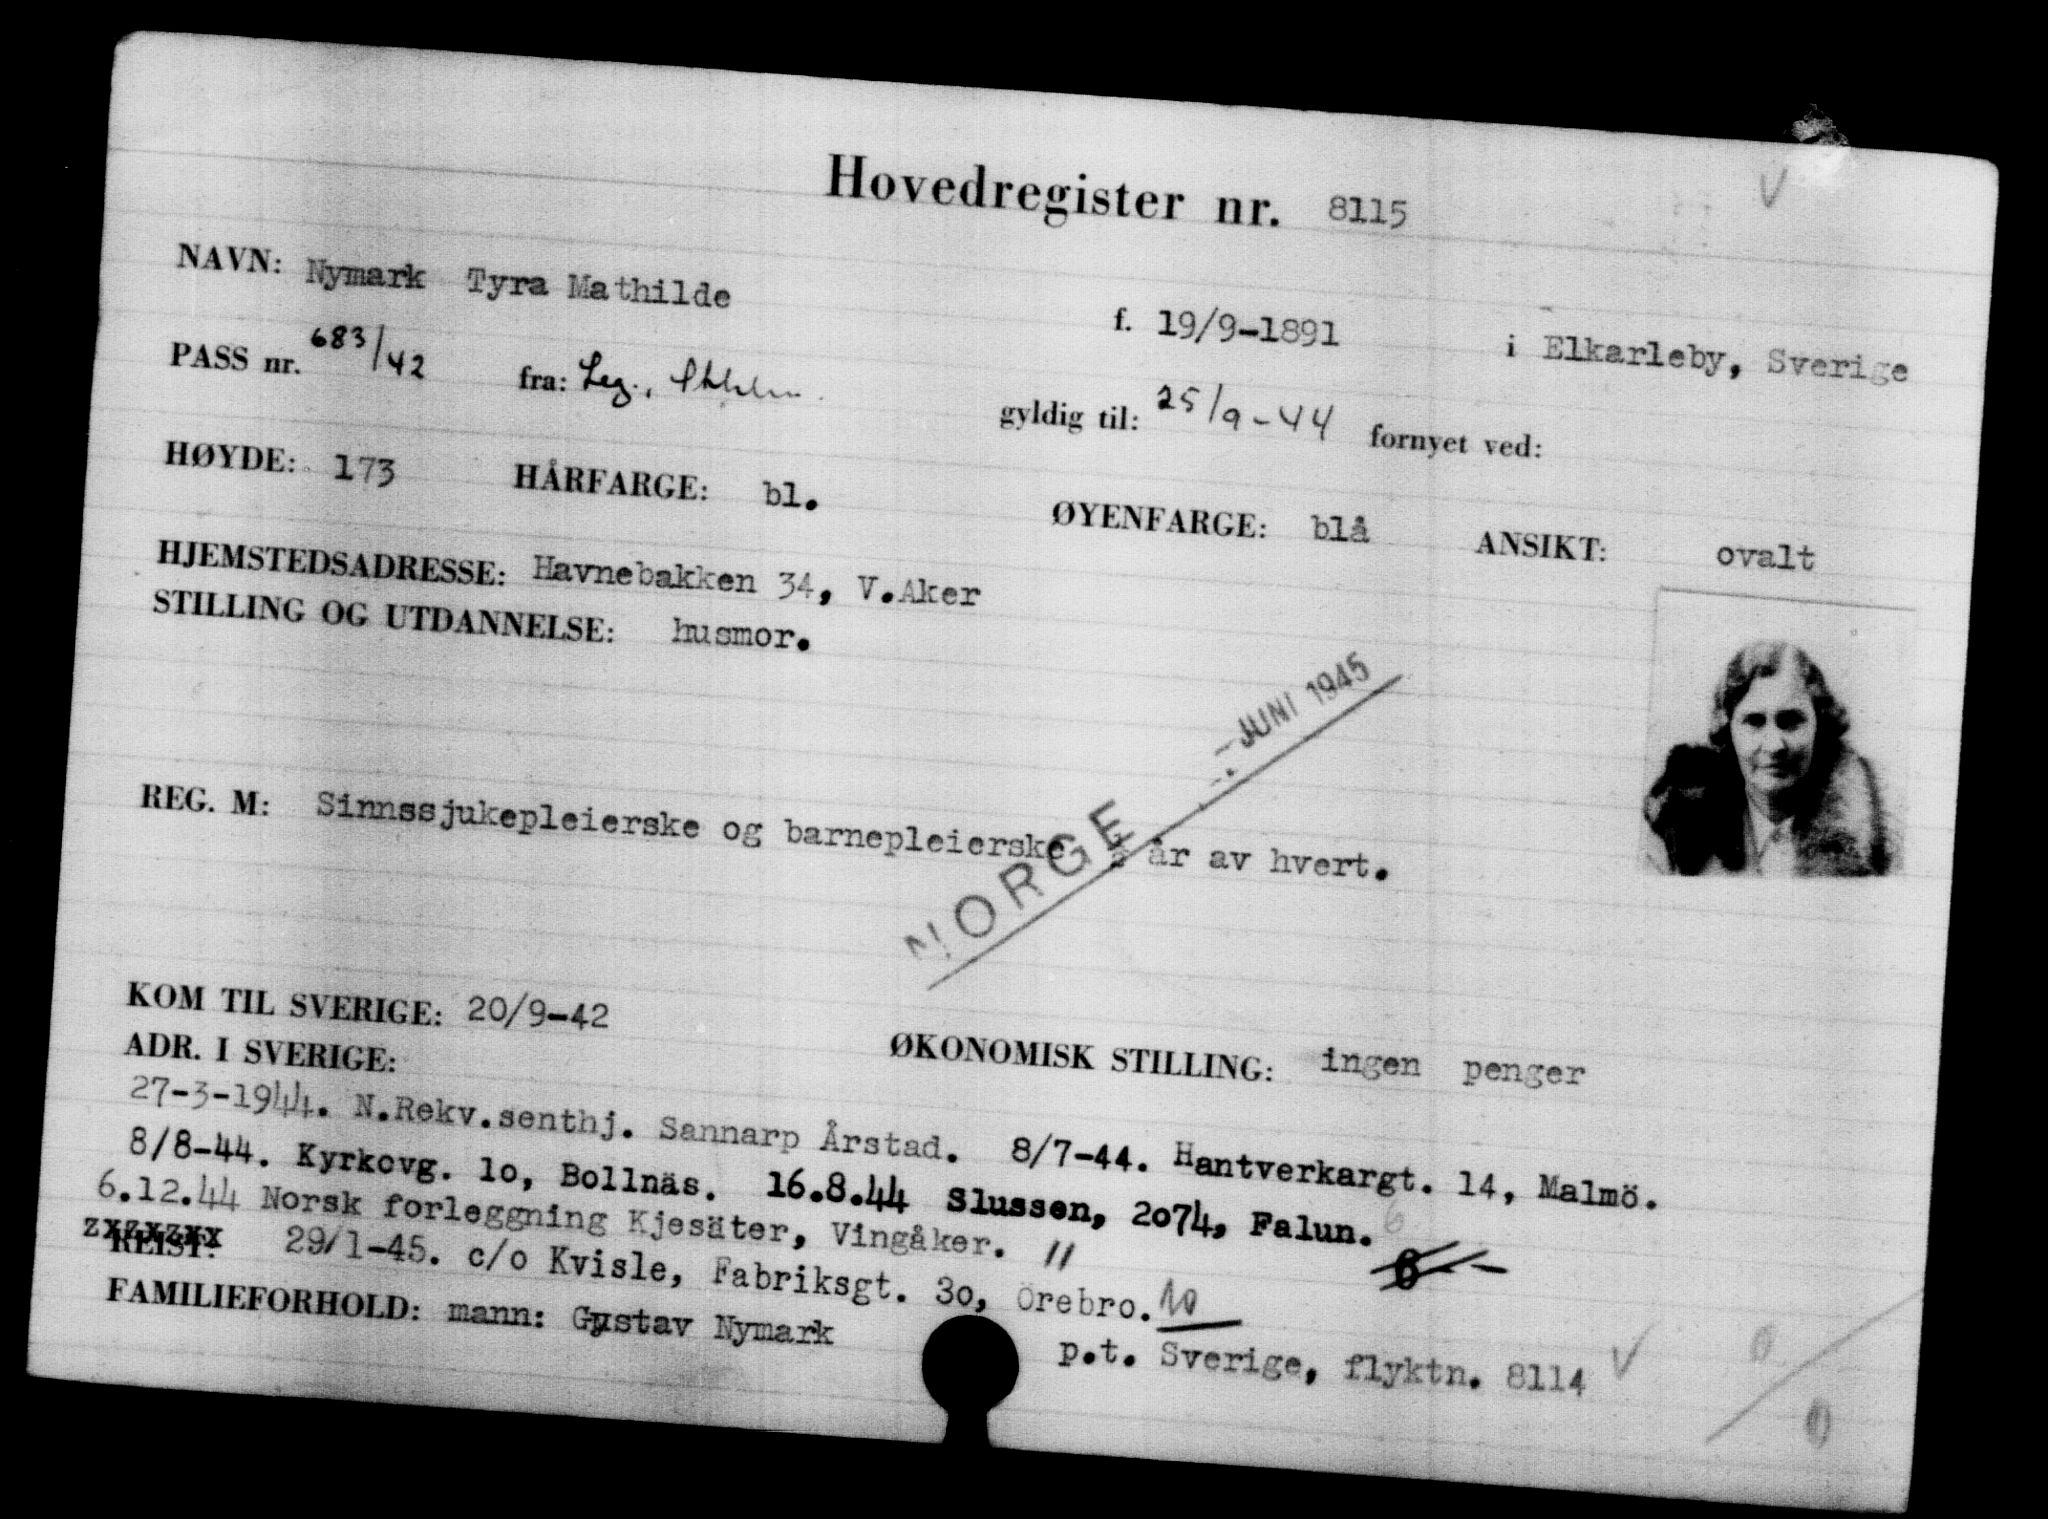 Hovedregister nr. 8115
NAVN: Nymark Tyra Mathilde f. 19/9-1891 i Elkarleby, Sverige
PASS nr. 683/42 fra: Leg., gyldig til: 25/9-44 fornyet ved:
HØYDE: 173 HÅRFARGE: bl. ØYENFARGE: blå ANSIKT: ovalt
HJEMSTEDSADRESSE: Havnebakken 34, V.Aker
STILLING OG UTDANNELSE: husmor.
JUNI 1945
REG. M: Sinnssjukepleierske og barnepleierske år av hvert.
NORGE
KOM TIL SVERIGE: 20/9-42 ØKONOMISK STILLING: ingen penger
ADR. I SVERIGE:
27-3-1944. N.Rekv.senthj. Sannarp Årstad. 8/7-44. Hantverkargt. 14, Malmö.
8/8-44. Kyrkovg. 1o, Bollnäs. 16.8.44 Slussen, 2o74, Falun. 6
6.12.44 Norsk forleggning Kjesäter, Vingåker. " 6
zxzxzxx
REIST: 29/1-45. c/o Kvisle, Fabriksgt. 3o, Örebro. 10
FAMILIEFORHOLD: mann: Gustav Nymark p.t. Sverige, flyktn. 8114
0
0